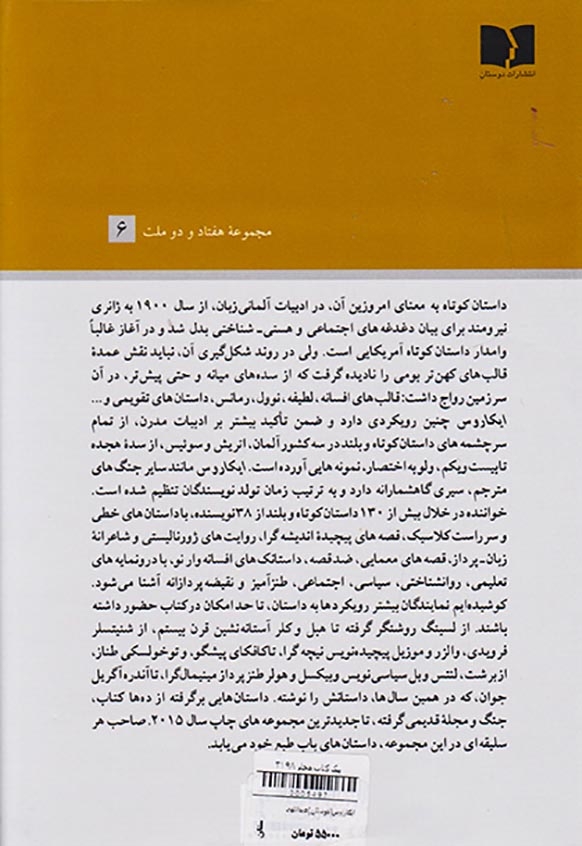 انتشارات دوستان
مجموعهٔ هفتاد و دو ملت ۶
داستان کوتاه به معنای امروزین آن، در ادبیات آلمانی‌زبان، از سال ۱۹۰۰ به ژانری
نیرومند برای بیان دغدغه‌های اجتماعی و هستی-شناختی بدل شد و در آغاز غالباً
وامدار داستان کوتاه آمریکایی است. ولی در روند شکل‌گیری آن، نباید نقش عمدهٔ
قالب‌های کهن‌تر بومی را نادیده گرفت که از سده‌های میانه و حتی پیش‌تر، در آن
سرزمین رواج داشت: قالب‌های افسانه، لطیفه، نوول، رمانس، داستان‌های تقویمی و...
ایکاروس چنین رویکردی دارد و ضمن تأکید بیشتر بر ادبیات مدرن، از تمام
سرچشمه‌های داستان کوتاه و بلند در سه کشور آلمان، اتریش و سوئیس، از سدهٔ هجده
تا بیست ویکم، ولو به اختصار، نمونه‌هایی آورده است. ایکاروس مانند سایر جنگ‌های
مترجم، سیری گاهشمارانه دارد و به ترتیب زمان تولد نویسندگان تنظیم شده است.
خواننده در خلال بیش از ۱۳۰ داستان کوتاه و بلند از ۳۸ نویسنده، با داستان‌های خطی
و سرراست کلاسیک، قصه‌های پیچیدهٔ اندیشه‌گرا، روایت‌های ژورنالیستی و شاعرانهٔ
زبان-پرداز، قصه‌های معمایی، ضدقصه، داستانک‌های افسانه‌وار نو، با درونمایه‌های
تعلیمی، روانشناختی، سیاسی، اجتماعی، طنزآمیز و نقیضه‌پردازانه آشنا می‌شود.
کوشیده‌ایم نمایندگان بیشتر رویکردها به داستان، تا حد امکان در کتاب حضور داشته
باشند. از لسینگ روشنگر گرفته تا هبل و کلر آستانه‌نشین قرن بیستم، از شنیتسلر
فرویدی، والزر و موزیل پیچیده‌نویس نیچه‌گرا، تا کافکای پیشگو، و توخولسکی طناز،
از برشت، لنتس و بل سیاسی‌نویس و بیکسل و هولر طنزپرداز مینیمال‌گرا، تا آندره آگریل
جوان، که در همین سال‌ها، داستانش را نوشته. داستان‌هایی برگرفته از ده‌ها کتاب،
جنگ و مجلهٔ قدیمی گرفته، تا جدیدترین مجموعه‌های چاپ سال ۲۰۱۵. صاحب هر
سلیقه‌ای در این مجموعه، داستان‌های باب طبع خود می‌یابد.
۵۵۰۰۰ تومان